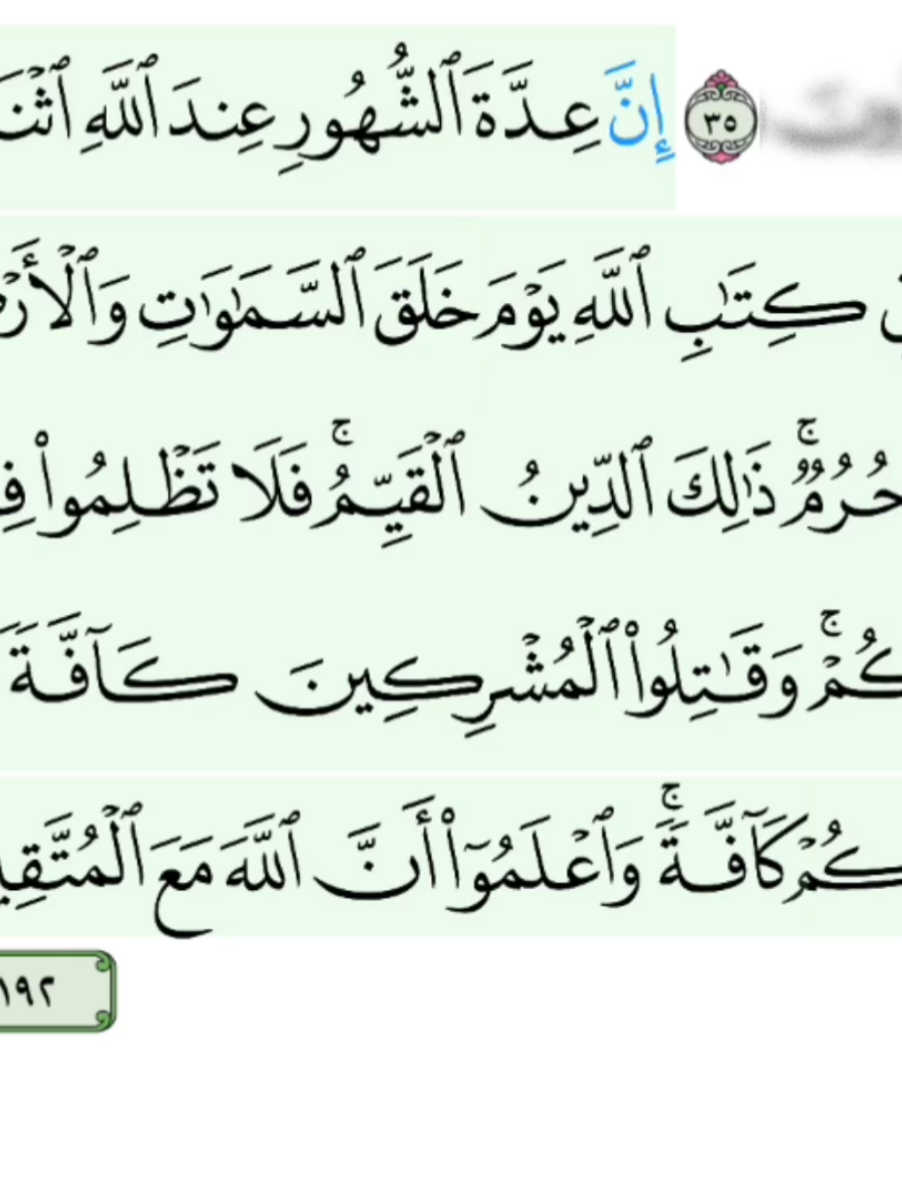 ٣٥ إِنَّ عِدَّةَ ٱلشُّهُورِ عِندَ ٱللَّهِ
كِتَٰبِ ٱللَّهِ يَوْمَ خَلَقَ ٱلسَّمَٰوَٰتِ
حُرُمٌۚ ذَٰلِكَ ٱلدِّينُ ٱلْقَيِّمُۚ فَلَا تَظْلِمُوا۟
كُمْۚ وَقَٰتِلُوا۟ ٱلْمُشْرِكِينَ كَآفَّةً
كُمْ كَآفَّةًۚ وَٱعْلَمُوٓا۟ أَنَّ ٱللَّهَ مَعَ
١٩٢